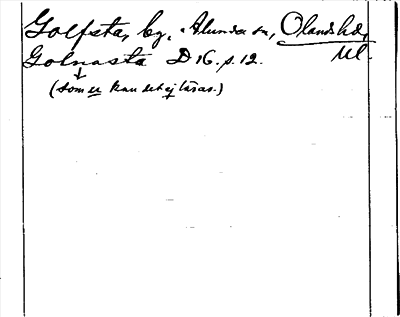 Golfsta, by. Alunda sn, Olands hd,
Ul.
Golnasta D 16. s. 12.
(som er kan det ej läsas.)